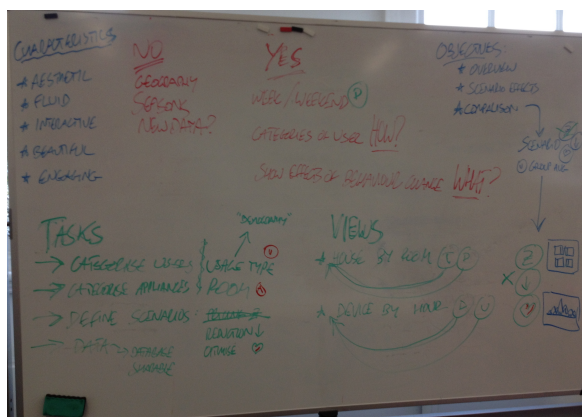 CHARACTERISTICS
* AESTHETIC
* FLUID
* INTERACTIVE
* BEAUTIFUL
* ENGAGING
NO
GEOGRAPHY
SEASONS
NEW DATA?
YES
WEEK/WEEKEND
CATEGORIES OF USER HOW?
SHOW EFFECTS OF BEHAVIOUR CHANGE WHAT?
OBJECTIVES:
* OVERVIEW
* SCENARIO EFFECTS
* COMPARISON
SCENARIO
TASKS
→ CATEGORISE USERS
→ CATEGORISE APPLIANCES
→ DEFINE SCENARIOS:
→ DATA → DATABASE
"DEMOGRAPHY"
USAGE TYPE
ROOM
REDUCTION ↓
VIEWS
* HOUSE BY ROOM
* DEVICE BY HOUR